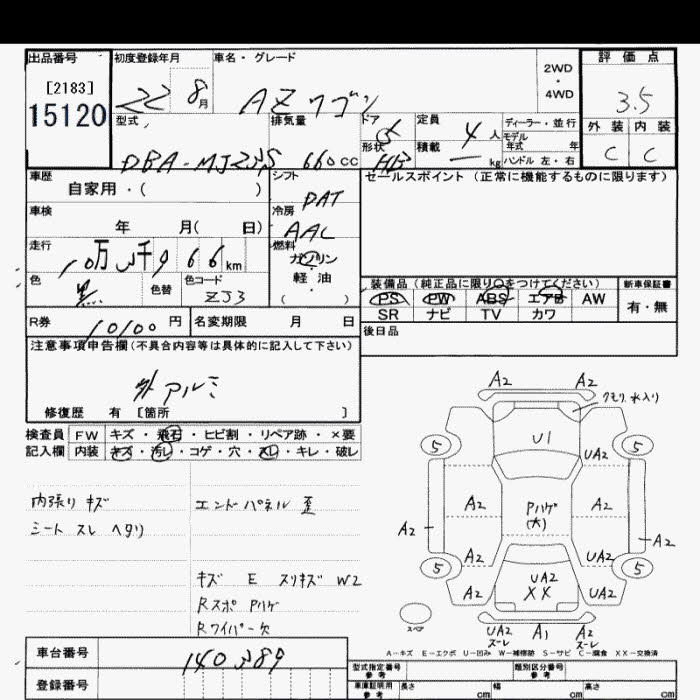 出品番号 初度登録年月 車名・グレード 評価点
[2183]
15120
22 8月 AZワゴン 2WD・4WD 3.5
型式 排気量 ドア形状 定員 4人 ディーラー・並行 外装 内装
積載 kg モデル年式 年
DBA-MJ23S 660cc 5 HB ハンドル 左・右 C C
車歴 シフト セールスポイント (正常に機能するものに限ります)
自家用・( ) DAT
車検 冷房
年 月( 日) AAC
走行 燃料
10万 千966km ガソリン
色 色替 色コード 軽・油
黒 ZJ3 ( )
装備品 (純正品に限り○をつけてください) 新車保証書
PS PW ABS エアB AW 有・無
SR ナビ TV カワ
R券 10100円 名変期限 月 日 後日品
注意事項申告欄(不具合内容等は具体的に記入して下さい)
外アルミ
修復歴 有 [箇所 ]
検査員 FW キズ・飛石・ヒビ割・リペア跡・×要
記入欄 内装 キズ・汚レ・コゲ・穴・スレ・キレ・破レ
内張り キズ
シート スレ ヘタリ
エンドパネル 歪
キズ E スリキズ W2
Rスポ Pハゲ
Rワイパー欠
A2 A2
クモリ、水入り
U1
5 5
UA2
A2 Pハゲ(大) A2
A2 A2
A2 UA2
5 5
A2 UA2 UA2
XX
スペア
UA2 A1 A2
ズーレ ズーレ
A-キズ E-エクボ U-凹み W-補修跡 S-サビ C-腐食 XX-交換済
車台番号 型式指定番号 参考 類別区分番号 参考
登録番号 車庫証明用 参考 長さ cm 幅 cm 高さ cm